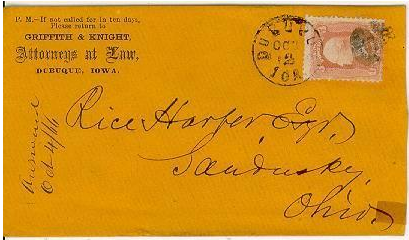 P. M.—If not called for in ten days,
Please return to
GRIFFITH & KNIGHT,
Attorneys at Law,
DUBUQUE, IOWA.
DUBUQUE
OCT
12
IOWA
Rice Harper, Esqr,
Sandusky,
Ohio.
Answered